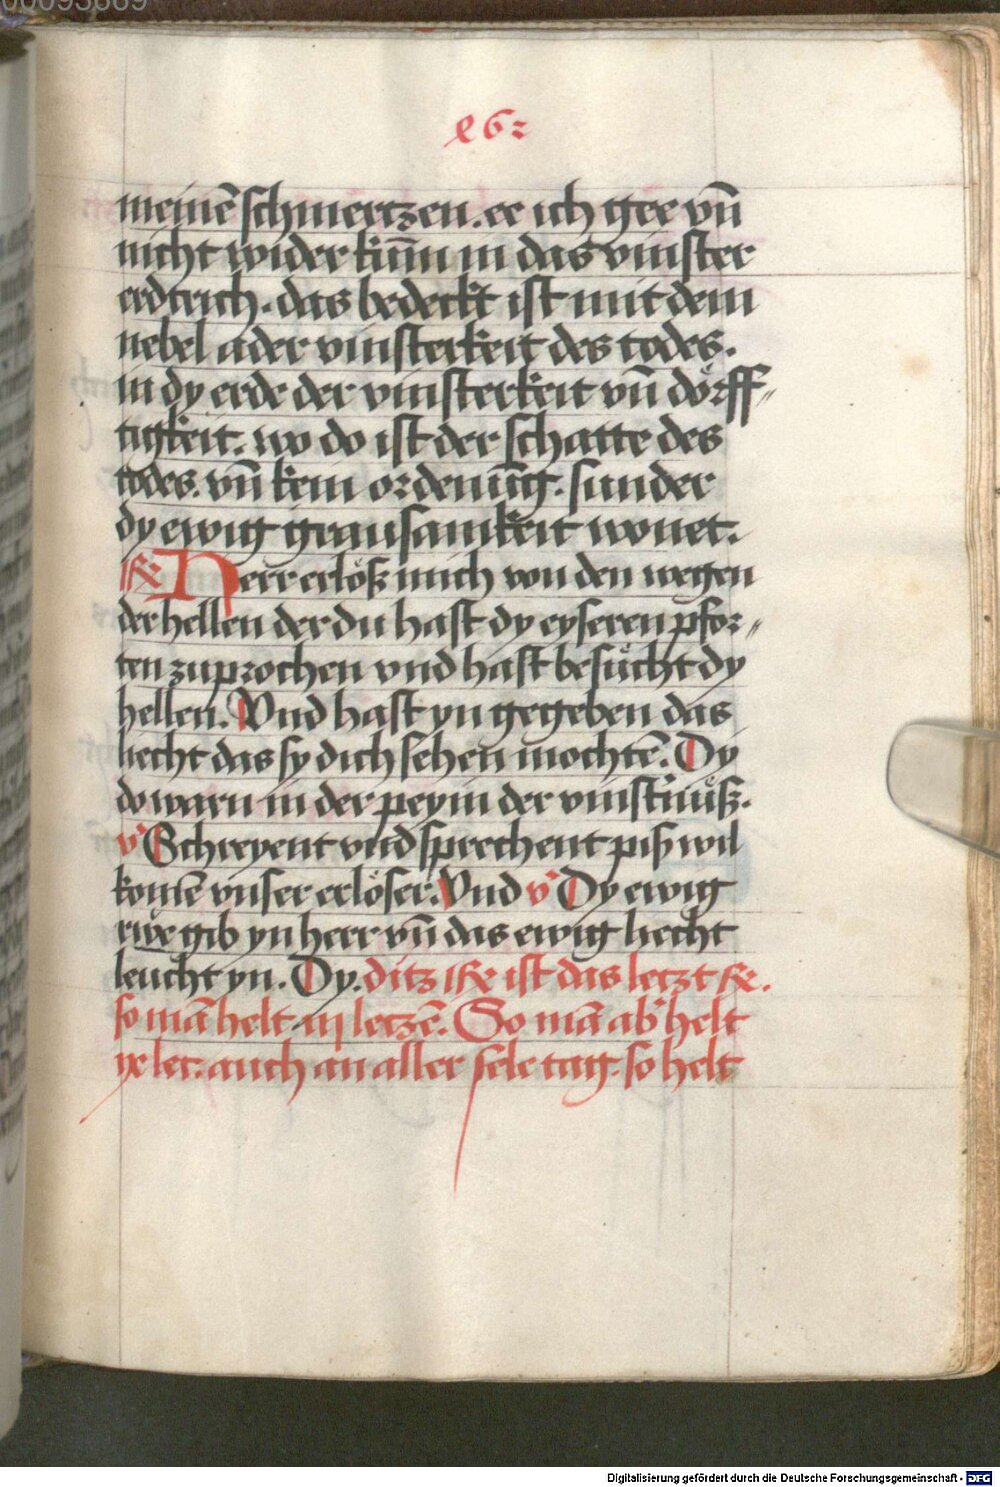 00093869
meinē schmertzen. ee ich gee vn̄
nicht wider kūm in das vinster
erdtrich. das bedeckt ist mit dem
nebel ader vinsterkeit des todes.
in dy erde der vinsterkeit vn̄ dörff〃
tigkeit. wo do ist der schatte des
todes. vn̄ kein ordenūg. sunder
dy ewig grausamkeit wonet.
Herr erlöß mich von den wegen
der hellen der du hast dy eyseren pfor〃
ten zuprochen vnd hast besücht dy
hellen. Vnd hast yn gegeben das
liecht das sy dich sehen mochtē. Dy
do warn in der peyin der vinst'nüß.
v' Schreyent vnd sprechent piß wil
komē vnser erlöser. Vnd v' Dy ewig
rwe gib yn herr vn̄ das ewig liecht
leucht yn. Dy. ditz ist das letzt
so mā helt iij letzē. So mā ab' helt
ye lec. auch an aller sele tag. so helt
Digitalisierung gefördert durch die Deutsche Forschungsgemeinschaft - DFG